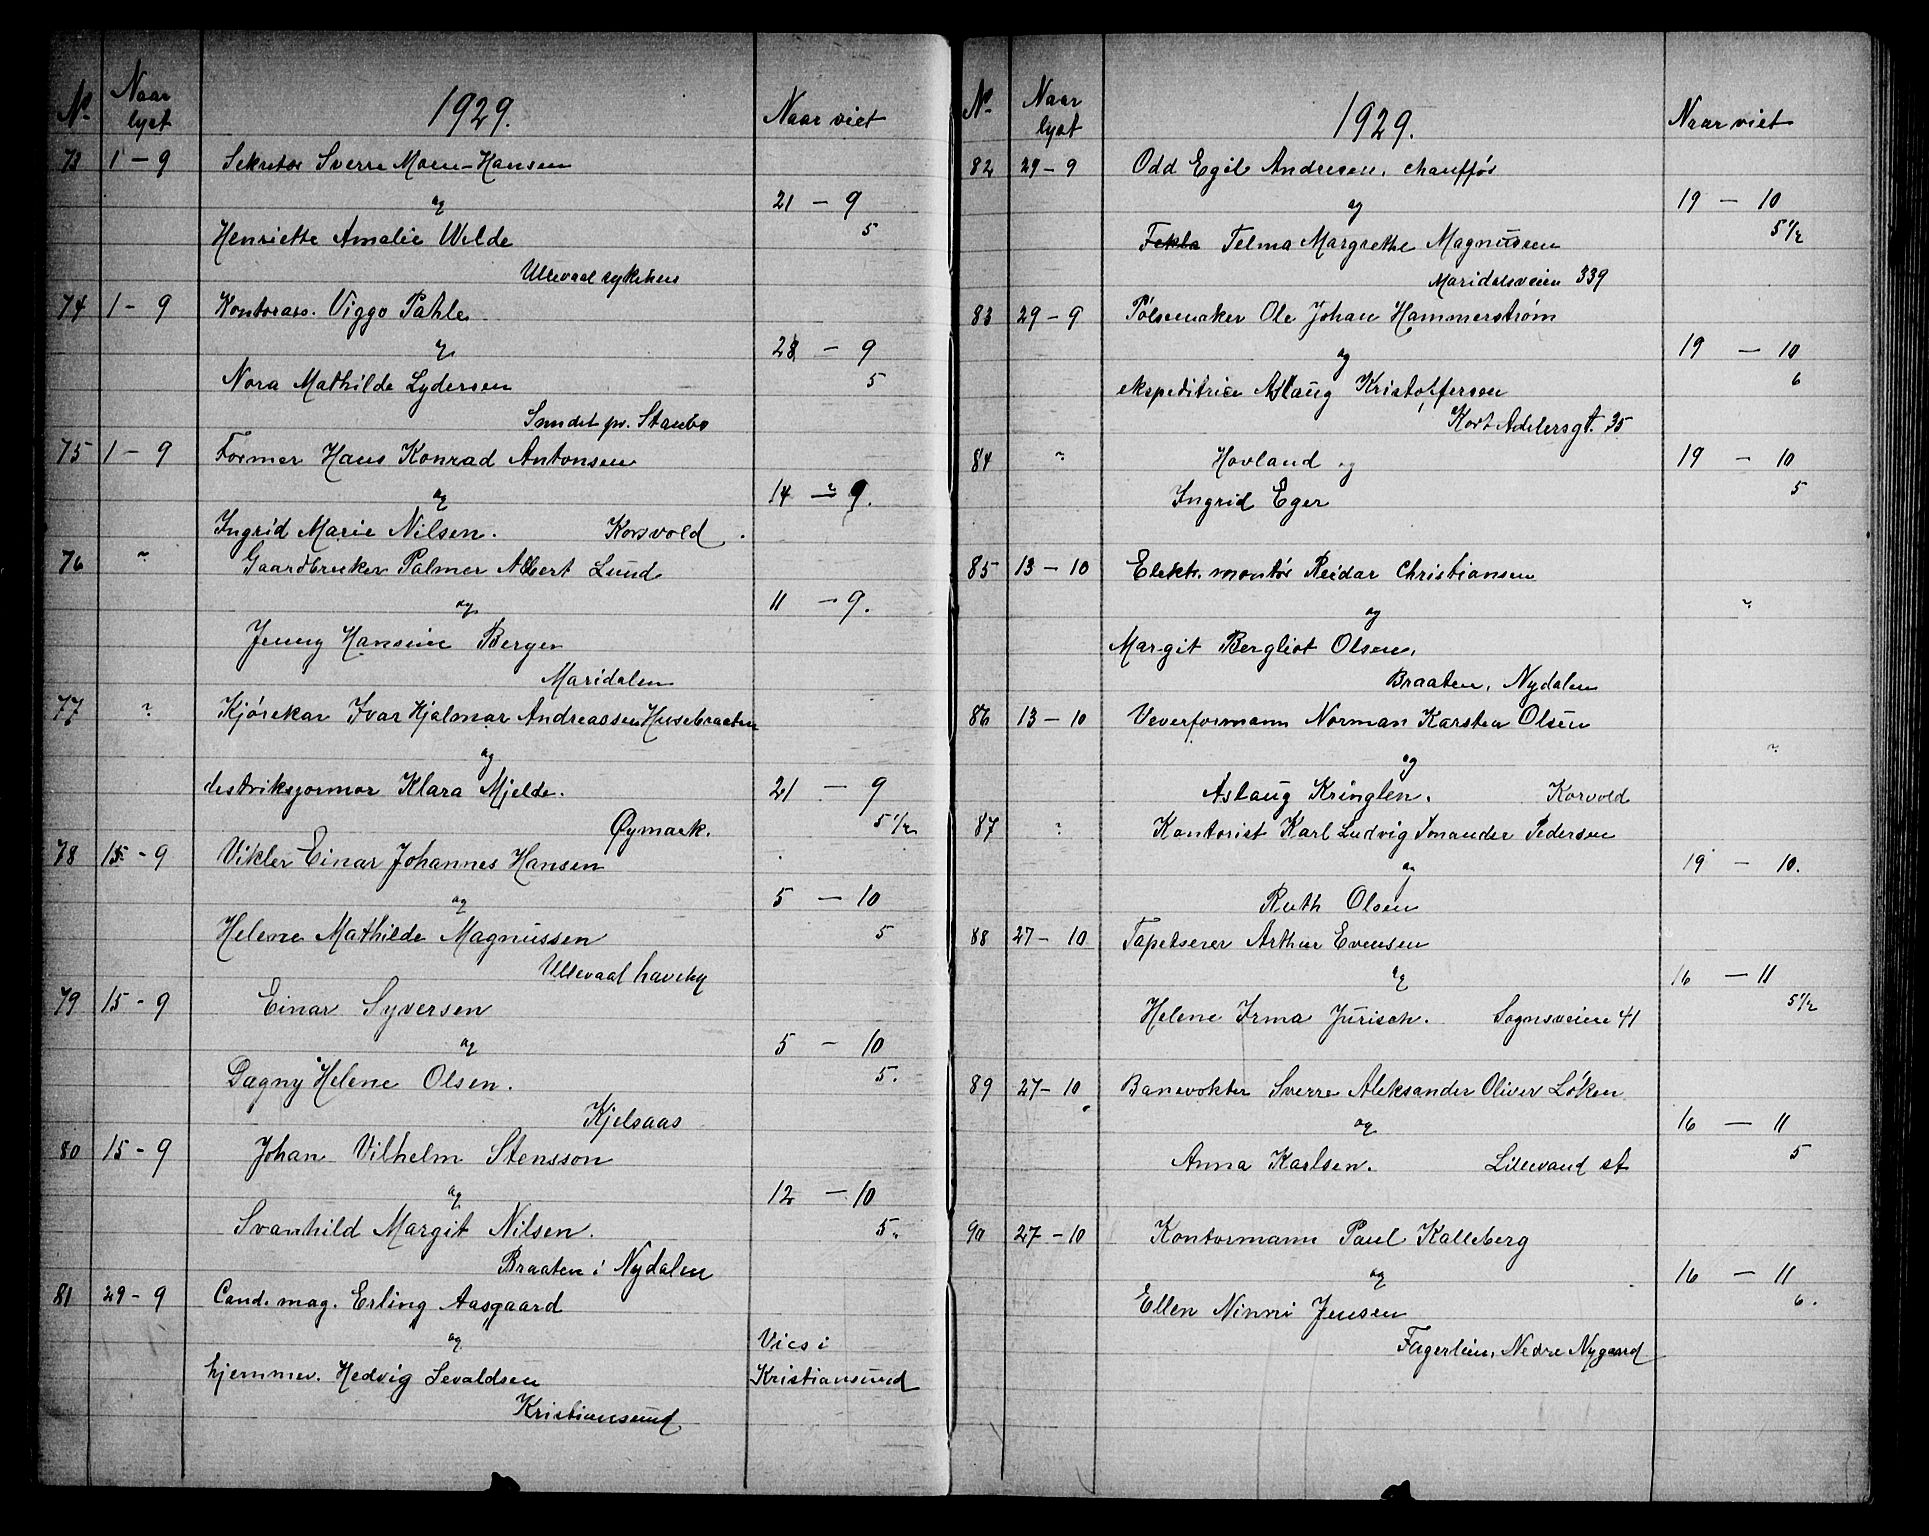 No Naar lyst 1929. Naar viet
73 1 - 9 Sekretær Sverre Moen-Hansen
og 21 - 9
Henriette Amalie Wilde 5
Ullevaal sykehus
74 1 - 9 Kontorass. Viggo Pahle
og 28 - 9
Nora Mathilde Lydersen 5
Sundet pr. Staubo
75 1 - 9 Former Hans Konrad Antonsen
og 14 - 9.
Ingrid Marie Nilsen. Korsvold.
76 " Gaardbruker Palmer Albert Lund
og 11 - 9.
Jenny Hansine Berger
Maridalen
77 " Kjørekar Ivar Hjalmar Andreassen Husebraaten
og
distriksjormor Klara Mjelde. 21 - 9
Øymark. 5 1/2
78 15 - 9 Vikler Einar Johannes Hansen
og 5 - 10
Helene Mathilde Magnussen 5
Ullevaal haveby
79 15 - 9 Einar Syversen
og 5 - 10
Dagny Helene Olsen. 5.
Kjelsaas
80 15 - 9 Johan Vilhelm Stensson
og 12 - 10
Svanhild Margit Nilsen. 5.
Braaten i Nydalen
81 29 - 9 Cand. mag. Erling Aasgaard
og Vies i
hjemmev. Hedvig Sevaldsen Kristiansund
Kristiansund
No Naar lyst 1929. Naar viet
82 29 - 9 Odd Egil Andresen, chauffør
og 19 - 10
Tekla Telma Margrethe Magnussen 5 1/2
Maridalsveien 339
83 29 - 9 Pølsemaker Ole Johan Hammerstrøm
og 19 - 10
ekspeditrice Aslaug Kristoffersen 6
Kort Adelersgt. 35
84 " Hovland og 19 - 10
Ingrid Eger 5
85 13 - 10 Elektr. montør Reidar Christiansen
og "
Margit Bergliot Olsen,
Braaten, Nydalen
86 13 - 10 Veverformann Norman Karsten Olsen
og "
Aslaug Kringlen. Korvold
87 " Kontorist Karl Ludvig Smander Pedersen
og 19 - 10.
Ruth Olsen
88 27 - 10 Tapetserer Arthur Evensen
og 16 - 11
Helene Irma Jurisch. Sognsveien 41 5 1/2
89 27 - 10 Banevokter Sverre Aleksander Oliver Løken
og 16 - 11
Anna Karlsen. Lillevand st 5
90 27 - 10 Kontormann Paul Kalleberg
og 16 - 11
Ellen Ninni Jensen 6.
Fagerlien, Nedre Nygaard